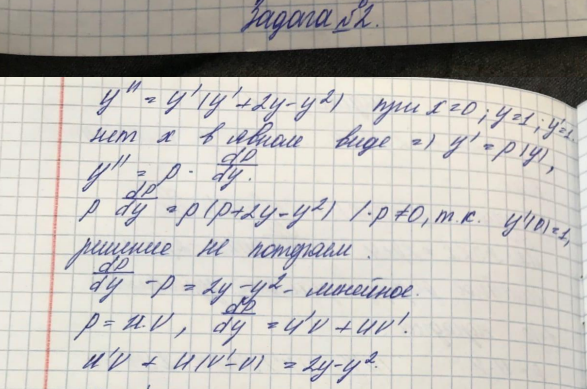 Задача №2.
y'' = y'(y'+2y-y²) при x=0; y=1; y'=1.
нет x в явном виде => y' = p(y),
y'' = p · dp/dy.
p dp/dy = p(p+2y-y²) /: p≠0, т.к. y'(0)=1,
решение не потеряем.
dp/dy - p = 2y-y² - линейное.
p = u·v, dp/dy = u'v + uv'.
u'v + u(v'-v) = 2y-y².